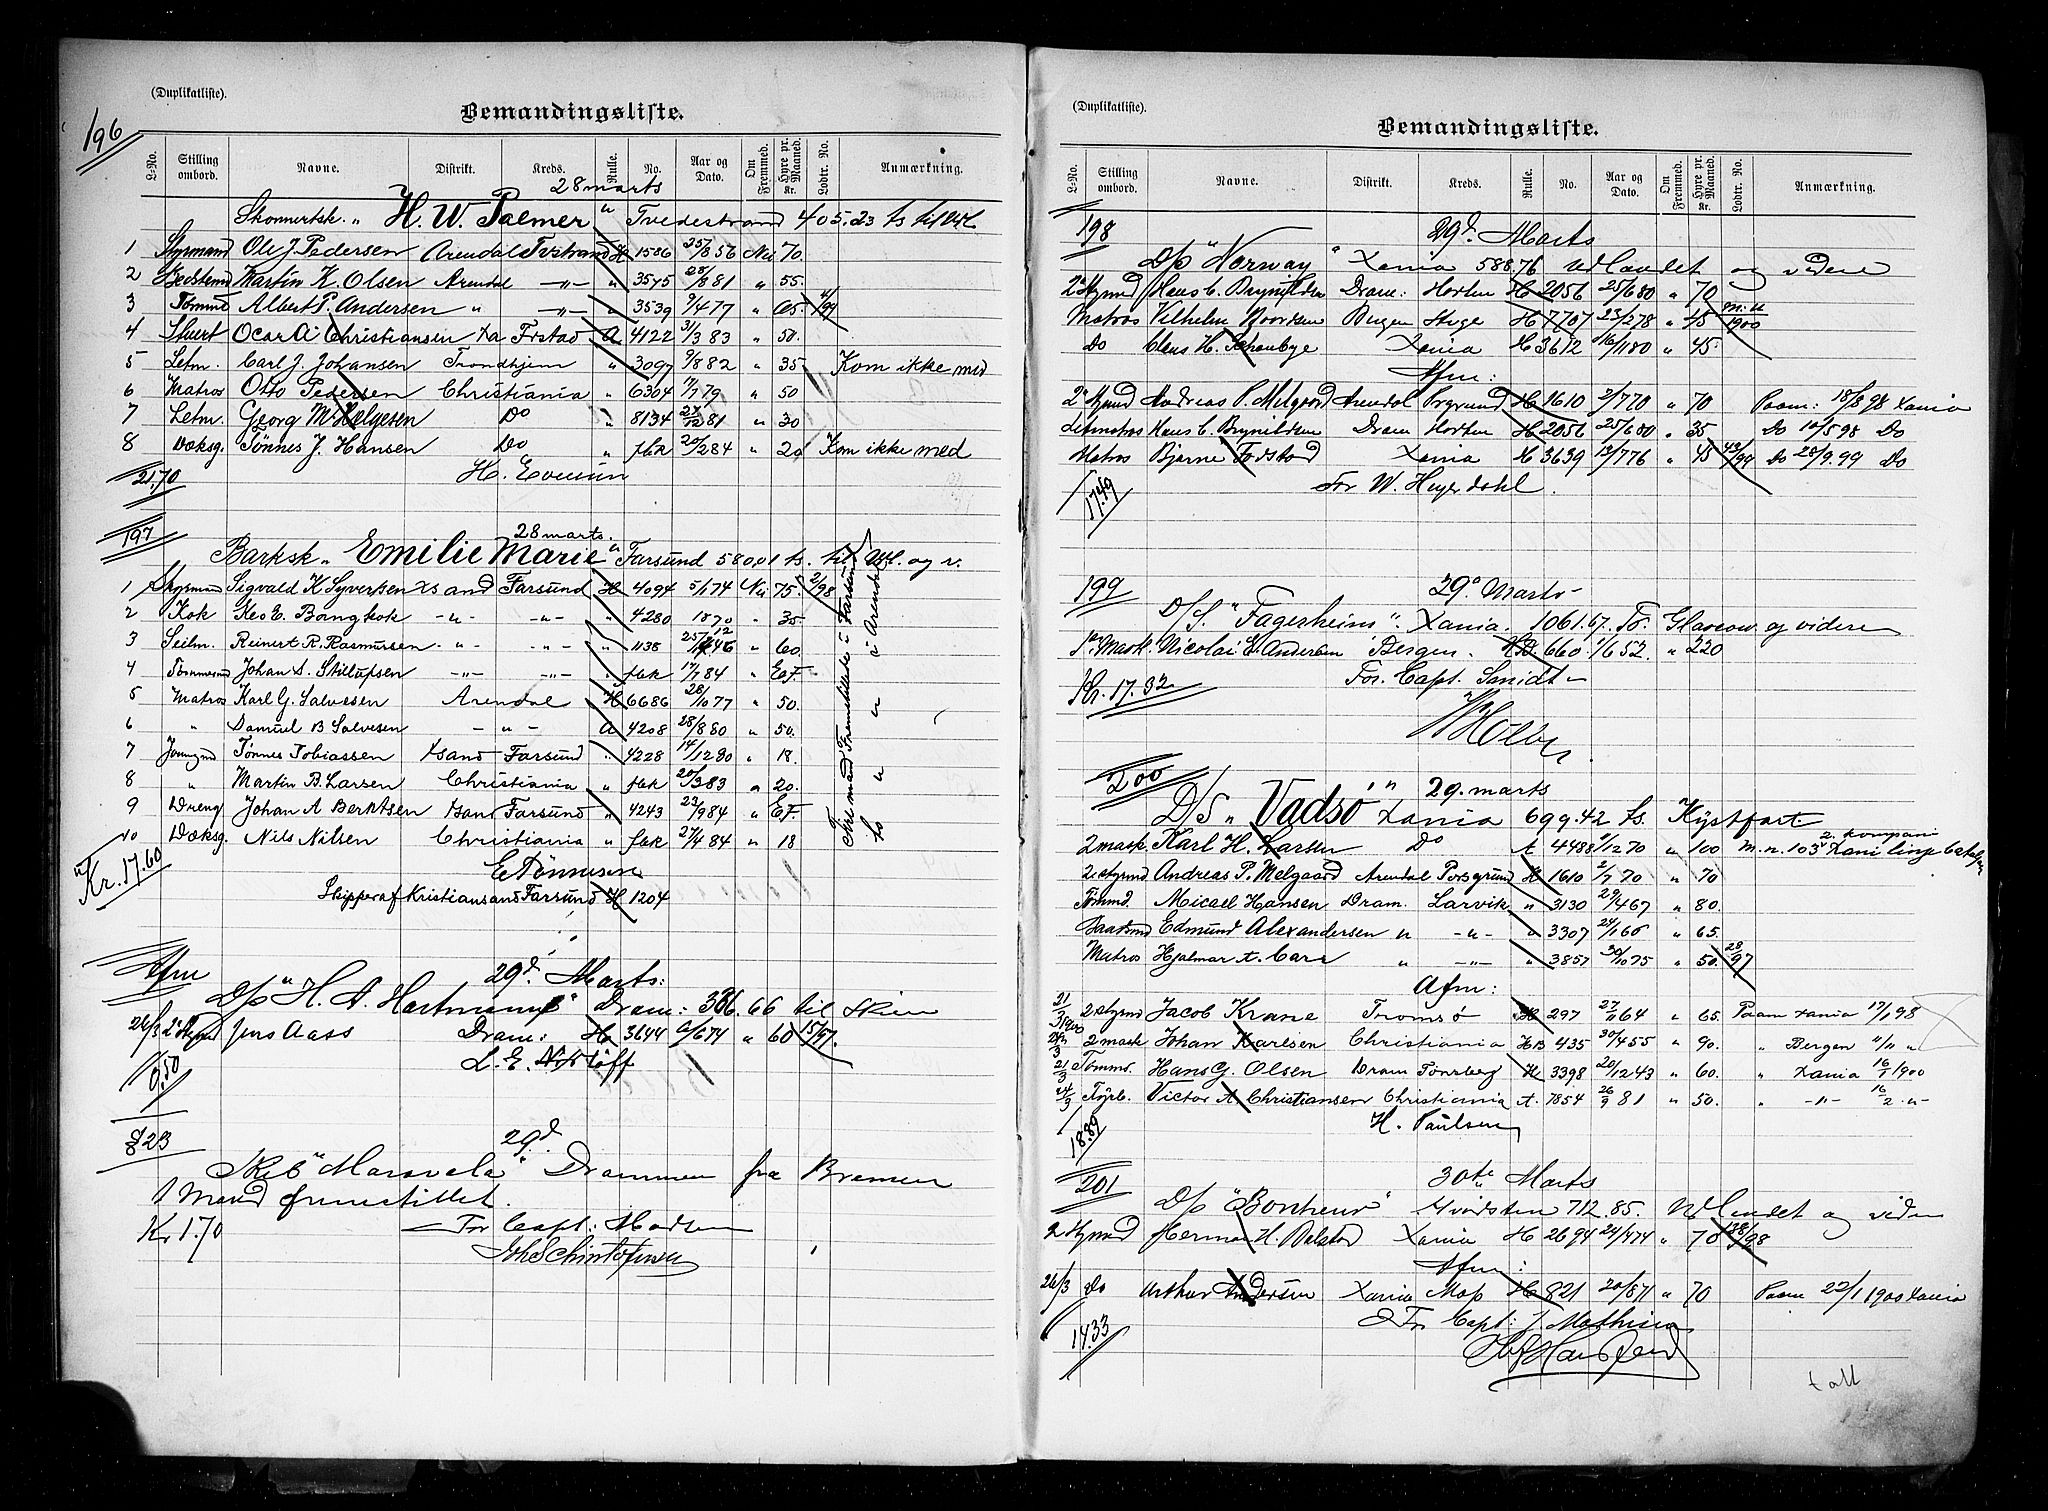 (Duplikatliste).
Bemandingsliste.
196
L-No. Stilling ombord. Navne. Distrikt. Kreds. Rulle. No. Aar og Dato. Om Fremmed. Hyre pr. Maaned. Kr. Lodtr. No. Anmærkning.
28 marts
Skonnertsk. " H. W. Palmer " Tvedestrand 405.23 ts til Udl.
1 Styrmand Ole J. Pedersen Arendal Tvstrand H 1586 25/8 56 Nei 70.
2 Martin K. Olsen Arendal -"- " 3545 28/8 81 " 55.
3 Tømmd Albert P. Andersen " -"- " 3539 9/4 77 " 65.
4 Stuert Ocar A. Christiansen Xa Frstad A 4122 31/3 83 " 50.
5 Letm. Carl J. Johansen Trondhjem " 3097 9/8 82 " 35 Kom ikke med
6 Matros Otto Pedersen Christiania " 6304 79 " 50
7 Letm. Georg M. Helgesen Do " 8134 81 " 30
8 Dæksg. Tønnes J. Hansen Do " fbk 20/2 84 " 20 Kom ikke med
21.70 H.
197
28 marts.
Barksk " Emilie Marie " Farsund 580,01 ts. til Udl. og v.
1 Styrmand Sigvald K Syvertsen Xsand Farsund H 4094 5/1 74 Nei 75. 2/98
2 Kok Keo E. Bangkok -"- -"- " 4280 1870 " 35
3 Seilm. Reinert R. Rasmussen -"- -"- " 1138 46 " 60.
4 Tømmermd Johan A. -"- -"- " fbk 17/7 84 " E.F
5 Matros Karl G. Salvesen Arendal H 6686 28/10 77 " 50.
6 " Damuel B Salvesen -"- A 4208 28/8 80 " 50.
7 Jonngmd Tønnes Tobiassen Xsand Farsund " 4228 14/12 80 " 18.
8 " Martin B. Larsen Christiania " fbk 83 " 20.
9 Dreng Johan A Berntsen Xsand Farsund " 4243 23/9 84 " E.F.
10 Dæksg. Nils Nilsen Christiania " fbk 27/4 84 " 18
Kr. 17.60 E Tønnesen
Skipper af Kristiansand Farsund H 1204
Afm
29d Marts:
D/s "H. A. Hartmann" Dram: 386.66 til Skien
26/3 2 Stymd Jens Aass Dram: H 3644 6/6 74 " 60 15/97.
0.50 L. E.
823
29d.
Skib "Maravela" Drammen fra Bremen
1 Mand fremstillet.
Kr 1.70 For Capt: Madsen
(Duplikatliste).
Bemandingsliste.
L-No. Stilling ombord. Navne. Distrikt. Kreds. Rulle. No. Aar og Dato. Om Fremmed. Hyre pr. Maaned. Kr. Lodtr. No. Anmærkning.
198 29d. Marts
D/s "Norway" Xania 588.76 Udlandet og videre
2 Stymd Hans C. Brynildsen Dram: Horten H 2056 25/6 80 " 70
Matros Vilhelm Noordsen Bergen Huge H 7707 23/2 78 " 45 1900
Do Claus H. Schanbye Xania H 3612 16/11 80 " 45.
Afm:
2 Stymd Andreas P. Melgaard Arendal Prgrund H 1610 2/7 70 " 70 Paam: 18/8 98 Xania
Letmatros Hans C. Brynildsen Dram Horten H 2056 25/6 80 " 35 Do 10/5 98 Do
Matros Bjarne Fodstad Xania H 3639 13/7 76 " 45 Do 28/9.99 Do
17.49 For W. Heyerdahl.
199 29de Marts
D/S. "Fagerheim". Xania. 1061.67 To. Glascow og videre
1ste Mask. Nicolai E. Andersen Bergen. HB 660 1/6 52. " 220
Kr. 17.32 For Capt. Smidt
200 29. marts
D/S " Vadsø " Xania 699.42 ts. Kystfart
2 mask Karl H. Larsen Do A 4488 1/12 70 " 100 M. n. 103 2. kompani Xania
2. styrmd Andreas P. Melgaard Arendal Porsgrund H 1610 2/7 70 " 70
Tømmd. Micael Hansen Dram. Larvik " 3130 29/4 67 " 80.
Baatsmd Edmund Alexandersen " -"- " 3307 " 65.
Matros Hjalmar A. " -"- " 3857 30/10 75 " 50. 28/97
Afm:
21/3 1900 2 styrmd Jacob Krane Tromsø H 297 27/11 64 " 65. Paam Xania 17/1 98
2 mask Johan Karlsen Christiania HB 435 30/4 55 " 90. " Bergen "
21/3 Tømms. Hans G. Olsen Dram Tønsberg H 3398 20/12 43 " 60. " Xania 16/1 1900
24/3 Fyrb. Victor A Christiansen Christiania A. 7854 26/9 81 " 50. " -"- 16/2 "
18.89 H. Paulsen
201 30te Marts
D/s "Bonheur" Hvidsten 712.85. Udlandet og viden
2 Stymd Herman H. Dalstad Xania H 2694 24/4 74 " 70 98
Afm:
26/3 Do Arthur Andersen Xania Mos H 821 20/8 71 " 70 Paam 22/1 1900 Xania
14.33 For Capt: J. Mathisen